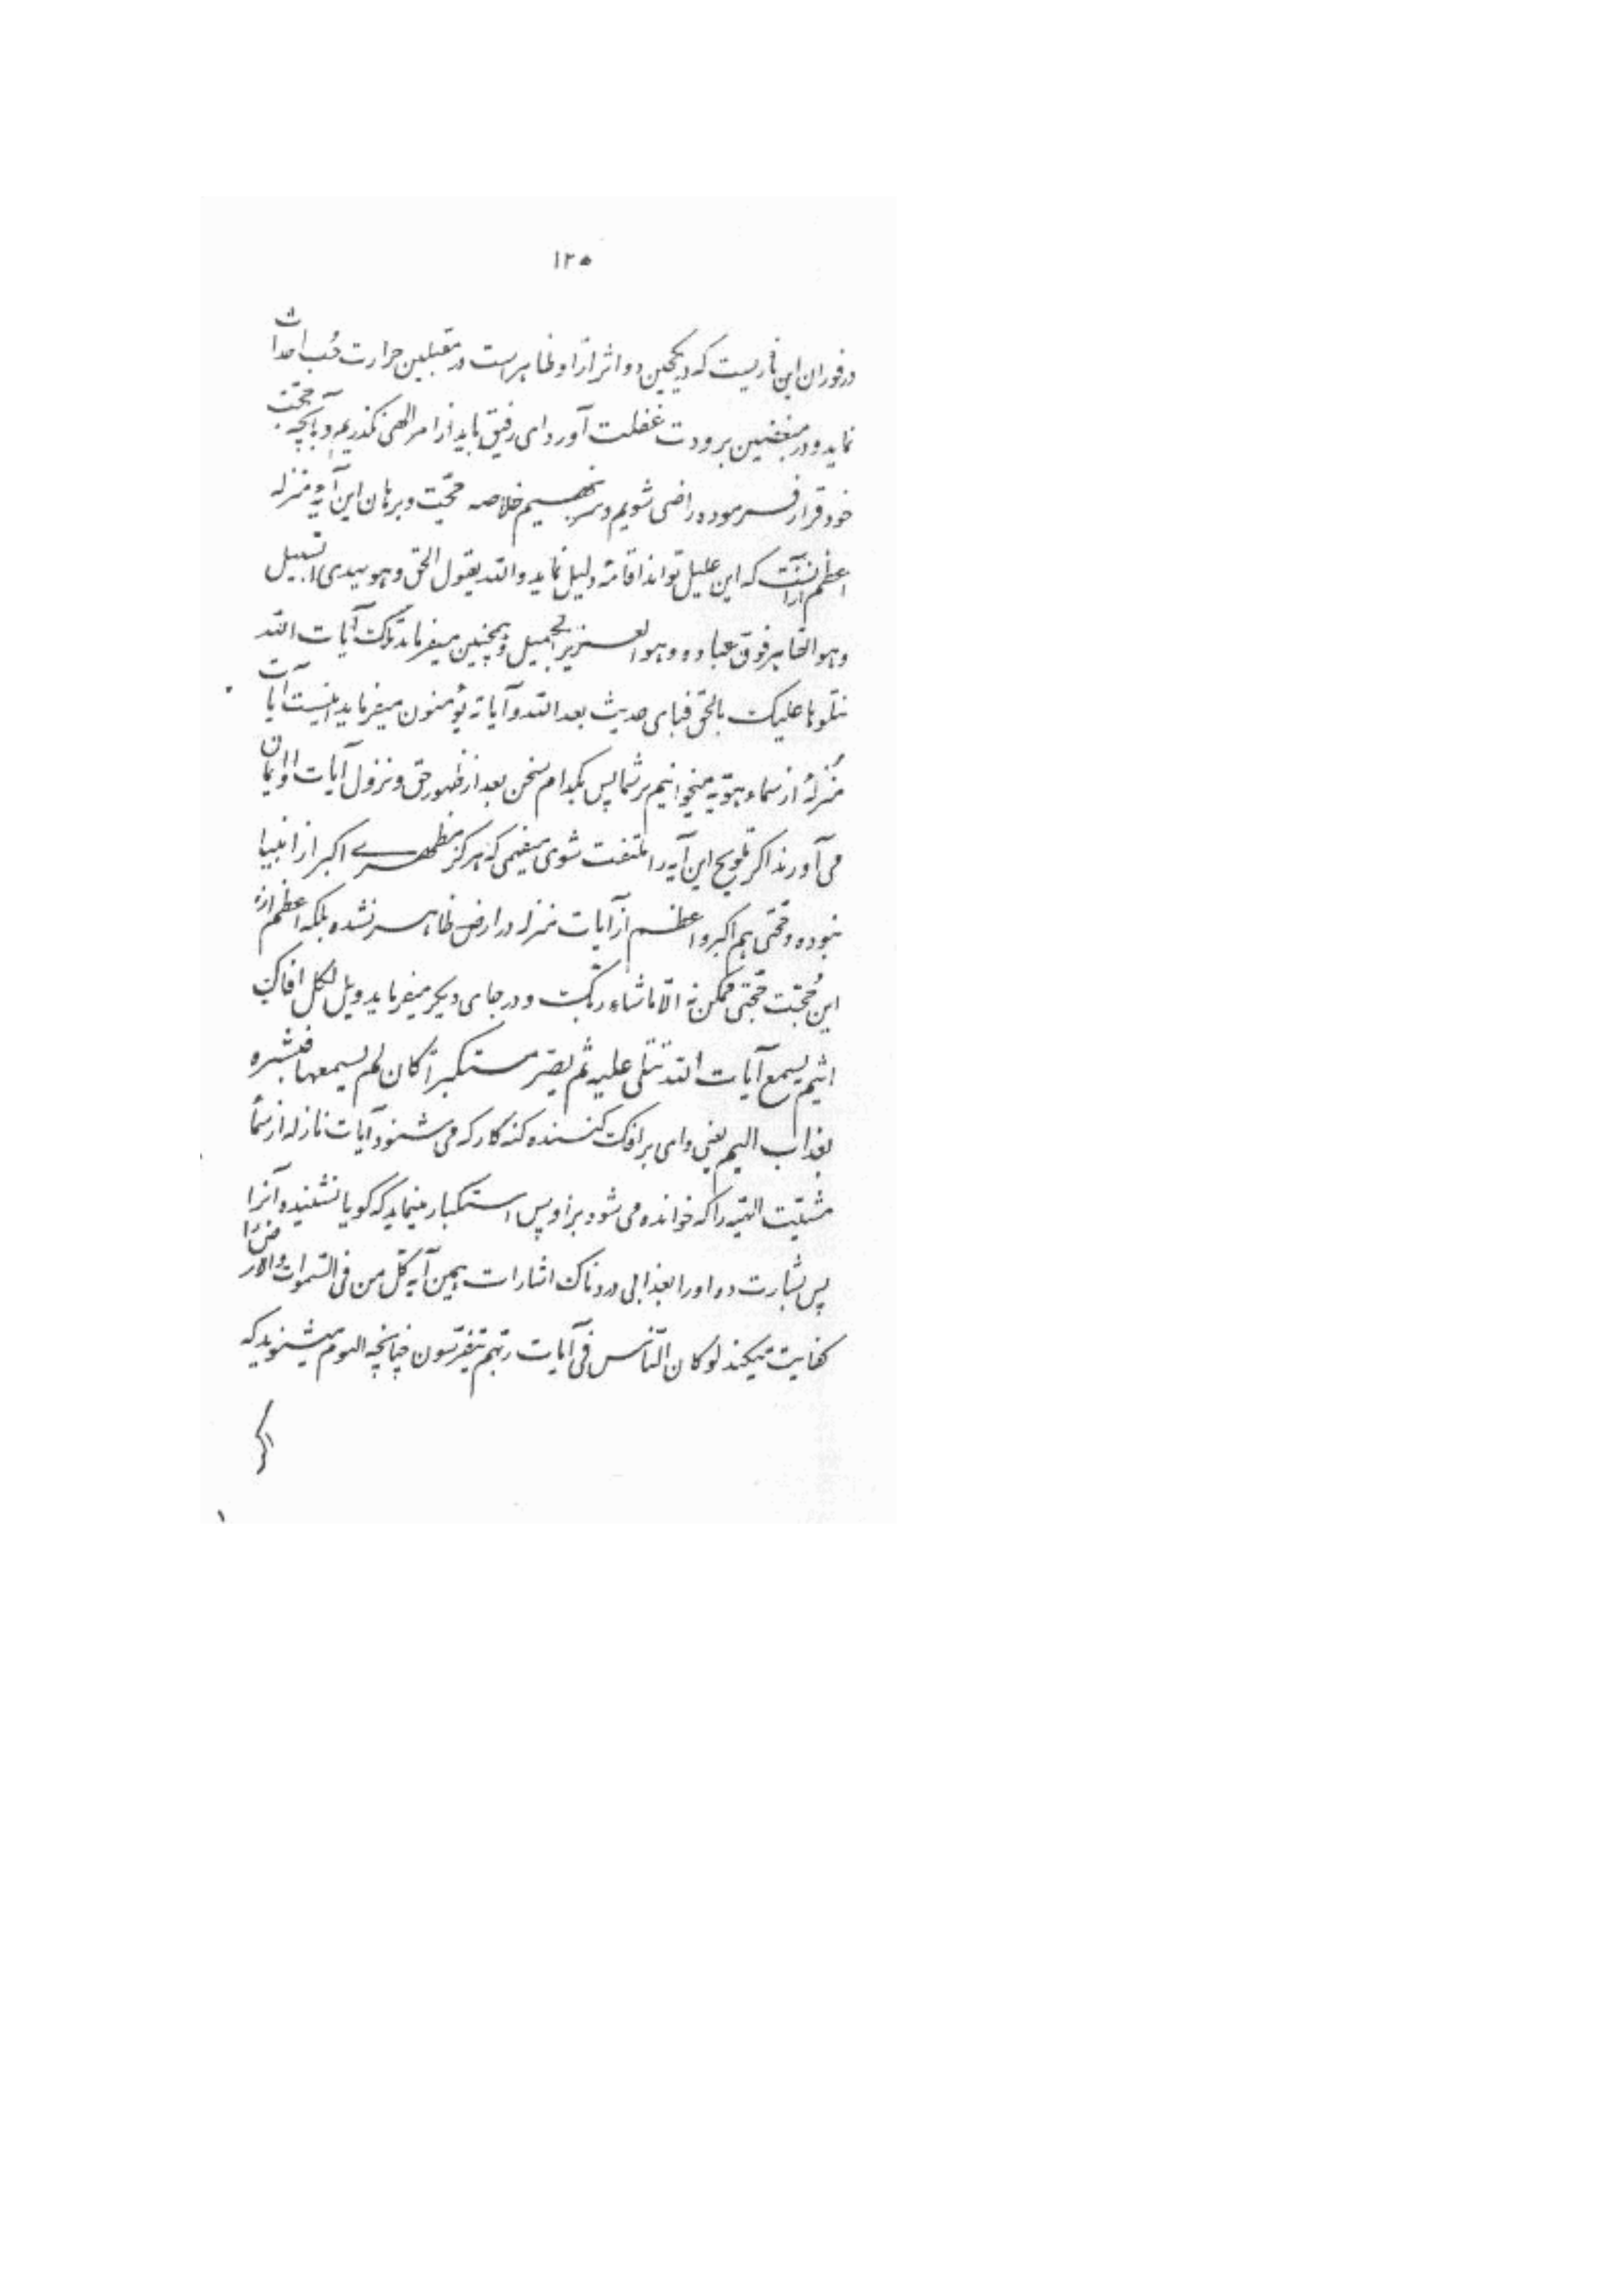 ١٢٥
در فوران این ناریست که در یکحین دو اثر از او ظاهر است در مقبلین حرارت حُب احداث
نماید و در مبغضین برودت غفلت آورد ای رفیق باید از امر الهی نگذریم و بآنچه حجّت
خود قرار فرموده راضی شویم و سر بنهیم خلاصه حجّت و برهان این آیهٴ منزله
اعظم از آنست که این علیل تواند اقامهٴ دلیل نماید و الله یقول الحق و هو یهدی السّبیل
و هو القاهر فوق عباده و هو العزیز الجمیل و همچنین میفرماید تلک آیات الله
نتلوها علیک بالحق فبای حدیث بعد الله و آیاته یؤمنون میفرماید اینست آیات
مُنزلهٴ از سماء هویّه میخوانیم بر شما پس بکدام سخن بعد از ظهور حق و نزول آیات او ایمان
می آورند اگر تلویح این آیه را ملتفت شوی میفهمی که هرگز مظهری اکبر از انبیا
نبوده و حجّتی هم اکبر و اعظم از آیات منزله در ارض ظاهر نشده بلکه اعظم از
این حُجّت حجّتی ممکن نه الّا ما شاء ربّک و در جای دیگر میفرماید ویل لکل افّاک
اثیم یسمع آیات الله تتلی علیه ثم یصرّ مستکبراً کان لم یسمعها فبشره
بعذاب الیم یعنی وای بر افک کننده گنه کار که می شنود آیات نازله از سماء
مشیّت الهیّه را که خوانده می شود بر او پس استکبار مینماید که گویا نشنیده آنرا
پس بشارت ده او را بعذابی دردناک اشارات همین آیه کلّ من فی السّموات و الارض را
کفایت میکند لو کان النّاس فی آیات ربّهم یتفرّسون چنانچه الیوم میشنوید که